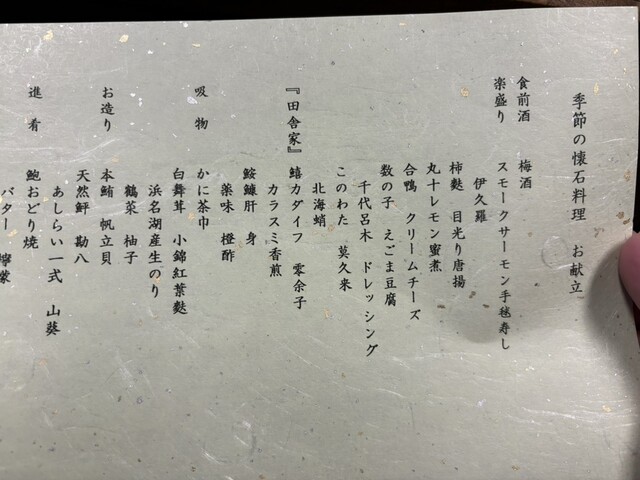 季節の懐石料理　お献立
食前酒　梅酒
楽盛り　スモークサーモン手毬寿し
伊久羅
柿麩　目光り唐揚
丸十レモン蜜煮
合鴨　クリームチーズ
数の子　えごま豆腐
千代呂木　ドレッシング
このわた　莫久来
北海蛸
『田舎家』　鱚カダイフ　零余子
カラスミ香煎
鮟鱇肝　身
薬味　橙酢
吸物　かに茶巾
白舞茸　小錦紅葉麩
浜名湖産生のり
鶴菜　柚子
お造り　本鮪　帆立貝
天然鮃　勘八
あしらい一式　山葵
進肴　鮑おどり焼
バター　檸檬